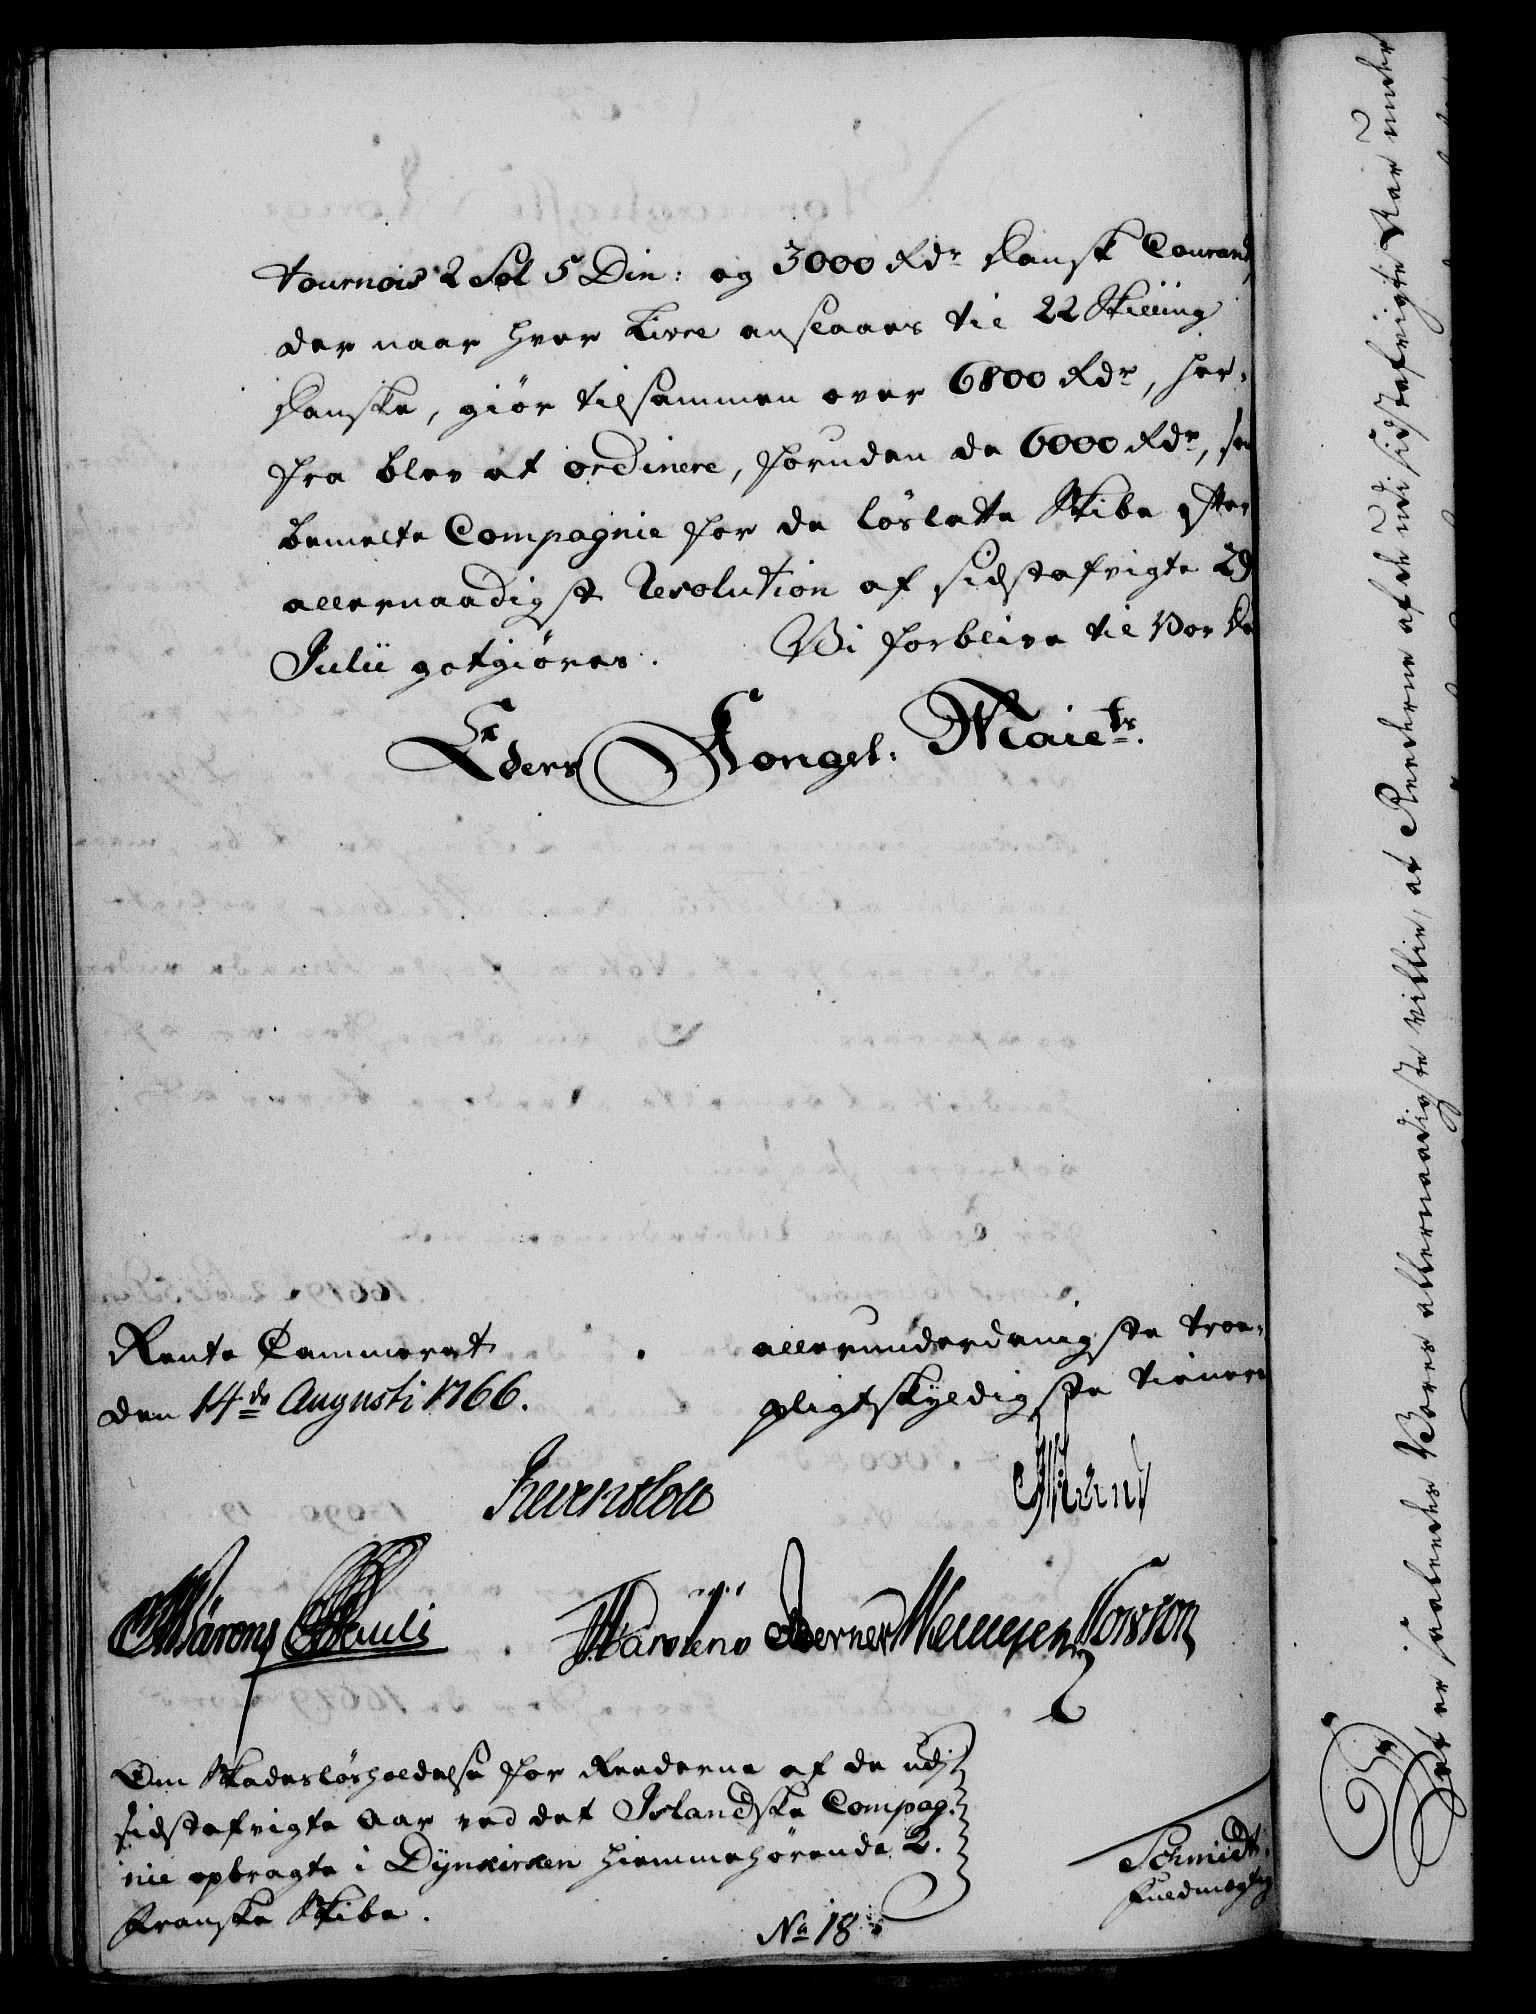 tournois 2 Sol 5 Din: og 3000 Rdr dansk Courant,
der naar hver Livre anslaaes til 22 Skilling
danske, giør tilsammen over 6800 Rdr, her-
fra blev at ordinere, foruden de 6000 Rdr, som
bemelte Compagnie for de løslatte Skibe efter
allernaadigst Resolution af sidstafvigte 29
Julii gotgiøres. Vi forblive til Vor Dø
Eders Kongel: Maiets.
Rente Cammeret
den 14de Augusti 1766.
allerunderdanigste troe-
pligtskyldigste tienere
Juel
Bärens Pauli
Marstens Berner
Om Skadesløsholdelse for Reederne af de udj
sidstafvigte Aar ved det Islandske Compag-
nie opbragte i Dynkirken hiemmehørende 2.
franske Skibe.
Schmidt.
fuldmægtig
No 18
Det er saaledes Vores allernaadigste villie, at Reederne af de udj sidstafvigte Aar under